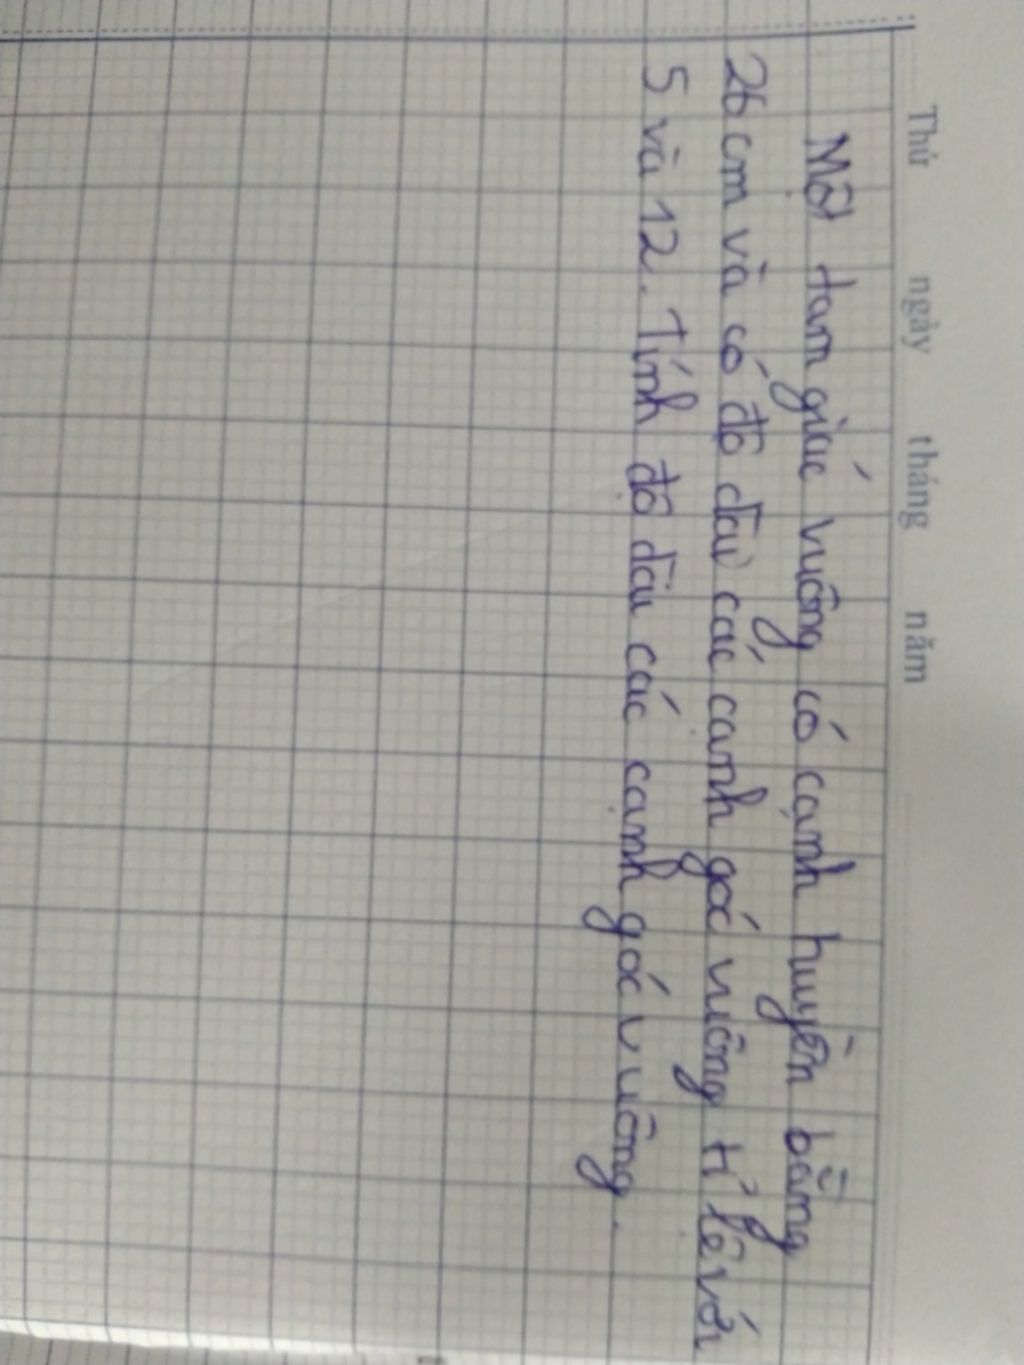 Thứ ngày tháng năm
Một tam giác vuông có cạnh huyền bằng
26 cm và có độ dài các cạnh góc vuông tỉ lệ với
5 và 12. Tính độ dài các cạnh góc vuông.